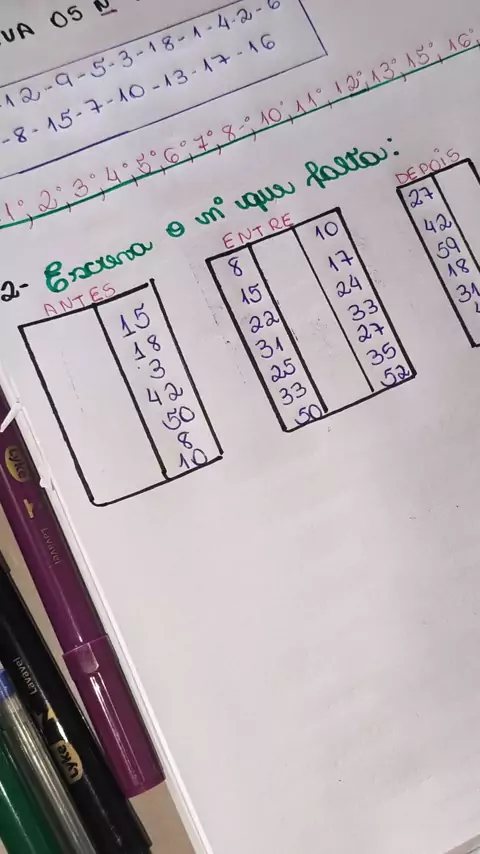 05 Nº
12-9-5-3-18-1-4-2-6
-8-15-7-10-13-17-16
1°, 2°, 3°, 4°, 5°, 6°, 7°, 8-°, 10°, 11°, 12°, 13°, 15°, 16°,
2- Escreva o nº que falta:
ANTES
15
18
3
42
50
8
10
ENTRE
8 10
15 17
22 24
31 33
25 27
33 35
50 52
DEPOIS
27
42
59
18
31
Lyke
Lavável
Lavável
Lyke